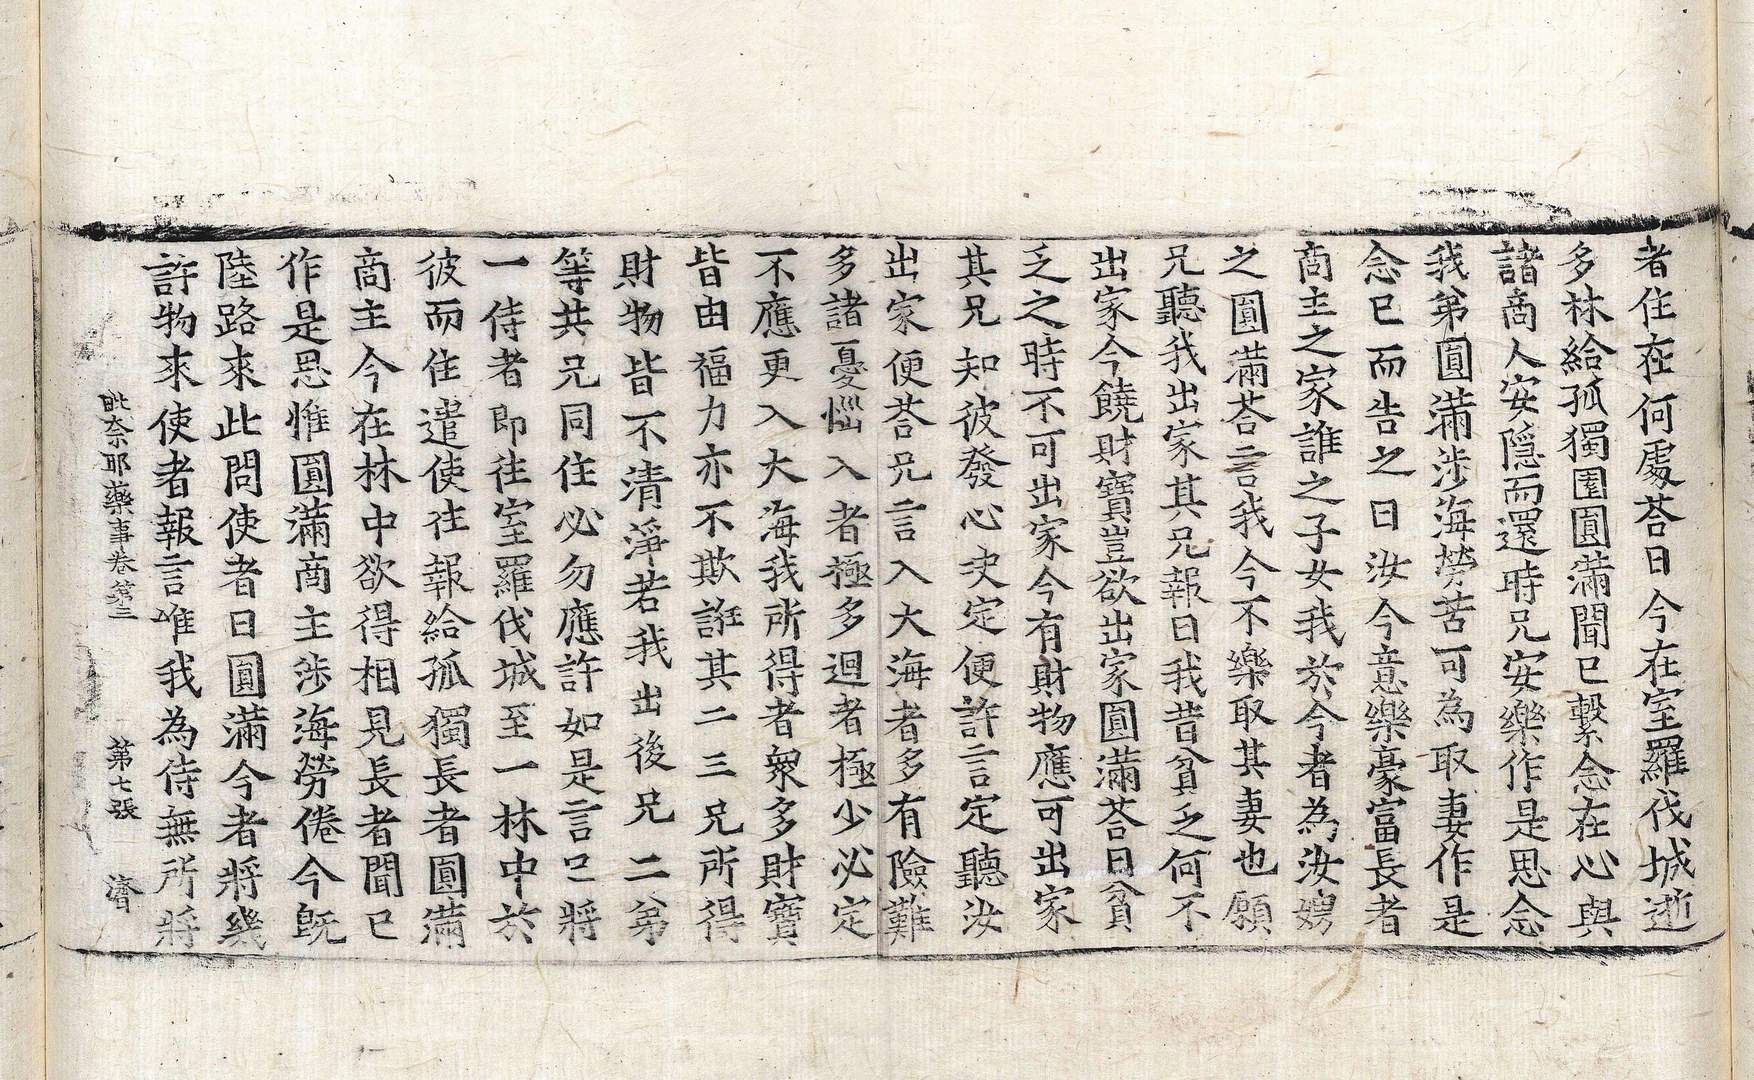 者住在何處荅曰今在室羅伐城逝
多林給孤獨園圓滿聞已繫念在心與
諸商人安隱而還時兄安樂作是思念
我弟圓滿涉海勞苦可為取妻作是
念已而告之曰汝今意樂豪富長者
商主之家誰之子女我於今者為汝娉
之圓滿荅言我今不樂取其妻也願
兄聽我出家其兄報曰我昔貧乏何不
出家今饒財寶豈欲出家圓滿荅曰貧
乏之時不可出家今有財物應可出家
其兄知彼發心决定便許言定聽汝
出家便荅兄言入大海者多有險難
多諸憂惱入者極多迴者極少必定
不應更入大海我所得者衆多財寶
皆由福力亦不欺誑其二三兄所得
財物皆不清淨若我出後兄二弟
等共兄同住必勿應許如是言已將
一侍者即往室羅伐城至一林中於
彼而住遣使往報給孤獨長者圓滿
商主今在林中欲得相見長者聞已
作是思惟圓滿商主涉海勞倦今旣
陸路來此問使者曰圓滿今者將幾
許物來使者報言唯我為侍無所將
毗奈耶藥事卷第三 第七張 濟